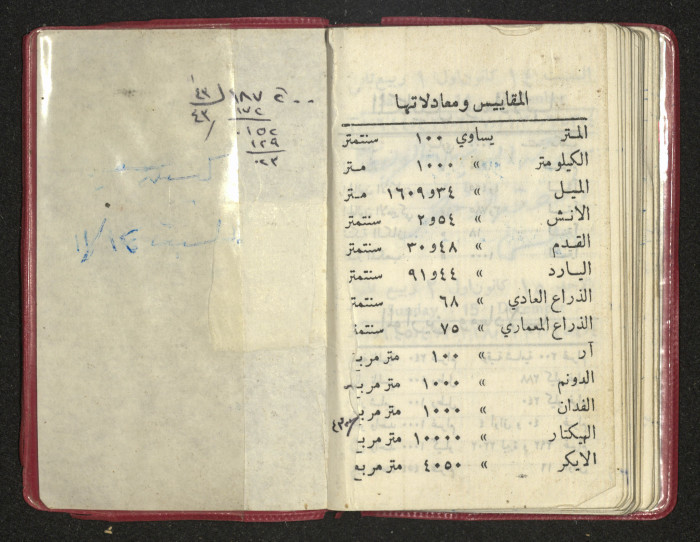 المقاييس ومعادلاتها
المتر يساوي ١٠٠ سنتمتر
الكيلومتر » ١٠٠٠ متر
الميل » ٣٤و١٦٠٩ متر
الانش » ٥٤و٢ سنتمتر
القدم » ٤٨و٣٠ سنتمتر
اليارد » ٤٤و٩١ سنتمتر
الذراع العادي » ٦٨ سنتمتر
الذراع المعماري » ٧٥ سنتمتر
آر » ١٠٠ متر مربع
الدونم » ١٠٠٠ متر مربع
الفدان » ١٠٠٠ متر مربع
الهيكتار » ١٠٠٠٠ متر مربع
الايكر » ٤٠٥٠ متر مربع
١٨٧ ٤٣
١٧٢ ٤٣
١٥٢
١٢٩
٠٢٣
السبت ١١/١٤